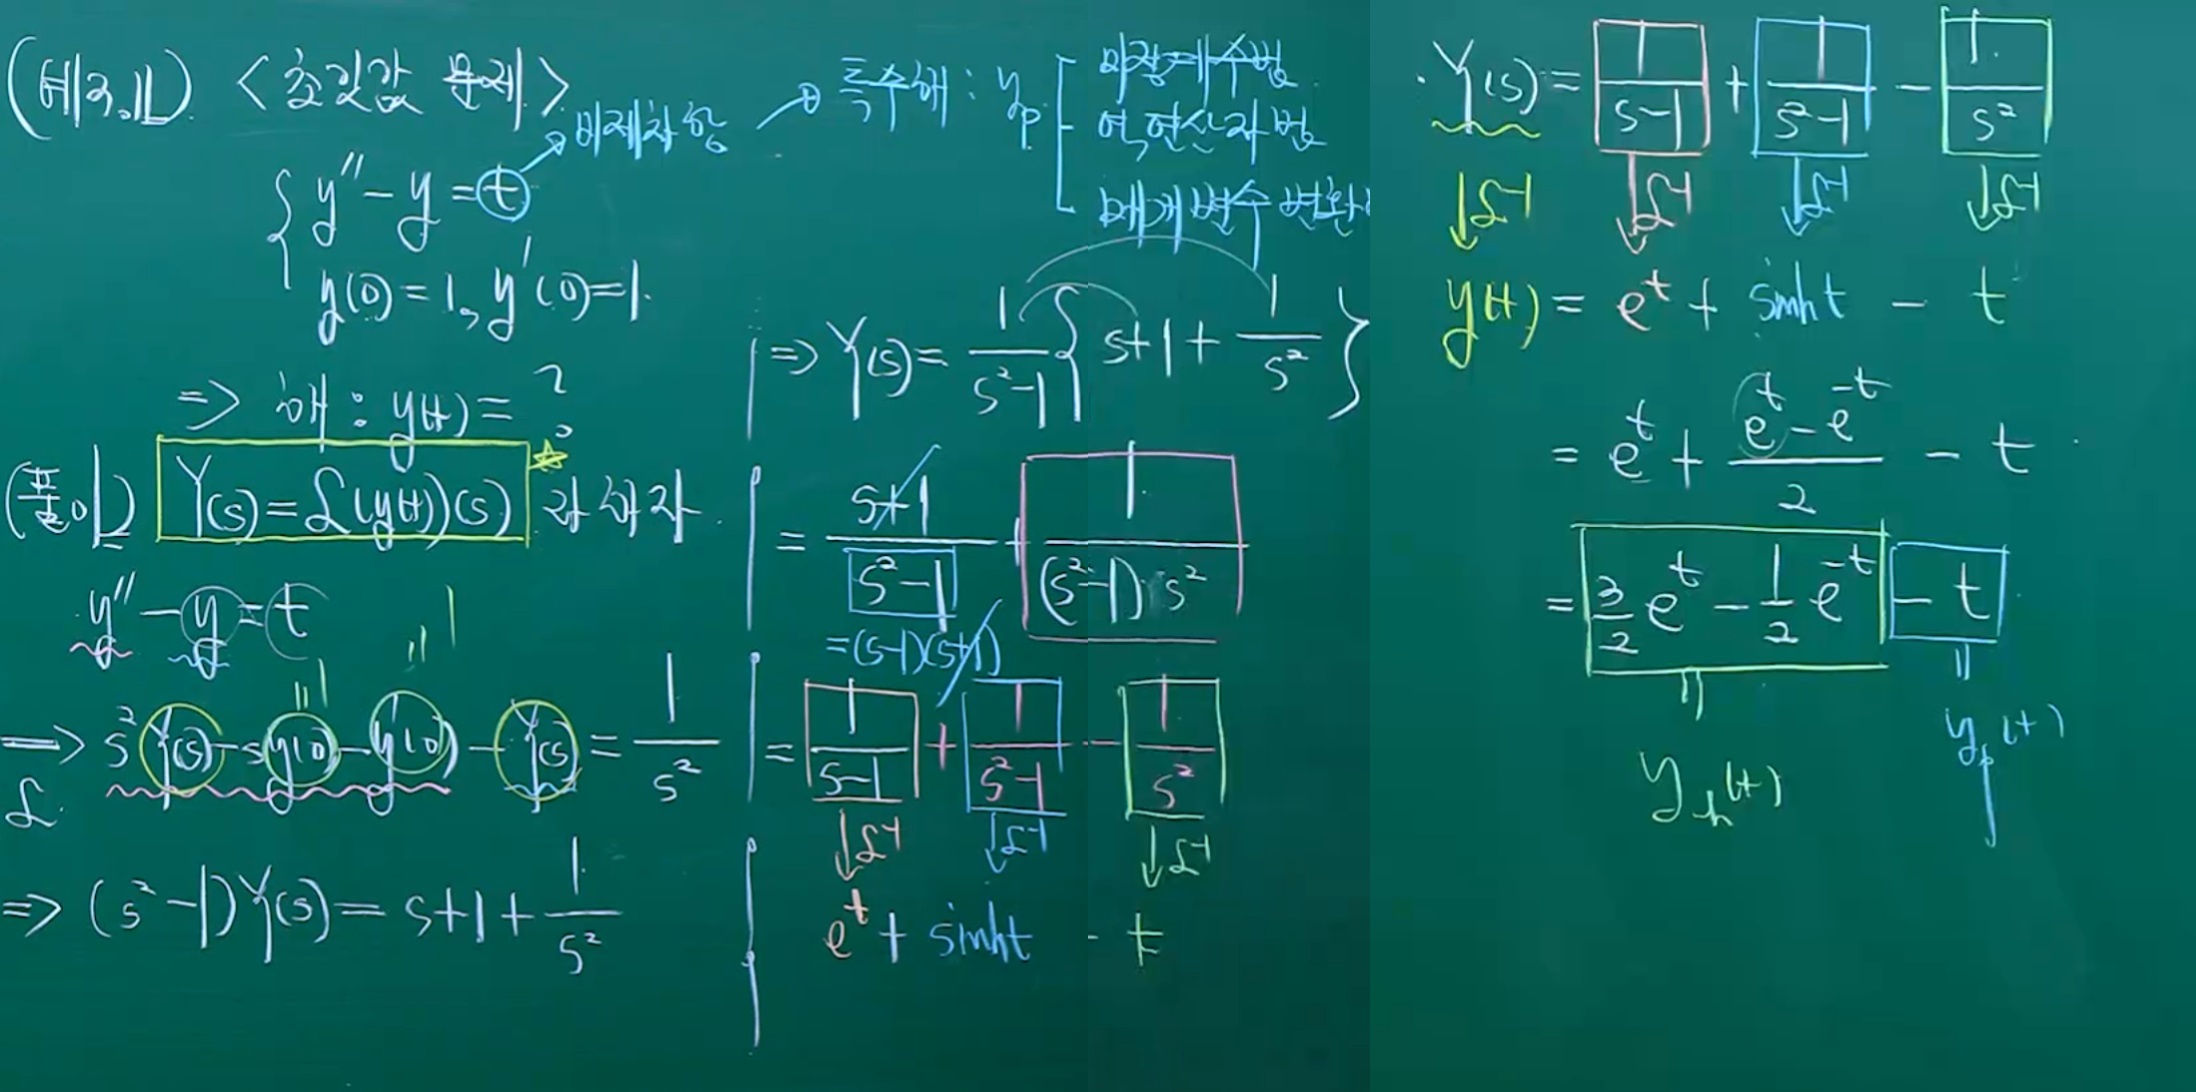 (예제.1) <초깃값 문제>
y'' - y = t → 비제차항 → 특수해 : y_p
미정계수법
역연산자법
매개변수 변환
y(0) = 1, y'(0) = 1.
⇒ 해 : y(t) = ?
(풀이) Y(s) = ℒ(y(t))(s) ☆ 라 하자.
y'' - y = t
" 1 " 1
⇒ ℒ s²Y(s) - sy(0) - y'(0) - Y(s) = 1/s²
⇒ (s²-1)Y(s) = s+1+ 1/s²
⇒ Y(s) = 1/(s²-1) { s+1+ 1/s² }
= (s+1)/(s²-1) + 1/((s²-1)·s²)
=(s-1)(s+1)
= 1/(s-1) + 1/(s²-1) - 1/s²
↓ℒ⁻¹ ↓ℒ⁻¹ ↓ℒ⁻¹
e^t + sinht - t
Y(s) = 1/(s-1) + 1/(s²-1) - 1/s²
↓ℒ⁻¹ ↓ℒ⁻¹ ↓ℒ⁻¹ ↓ℒ⁻¹
y(t) = e^t + sinht - t
= e^t + (e^t - e^-t)/2 - t
= 3/2 e^t - 1/2 e^-t - t
" "
y_h(t) y_p(t)